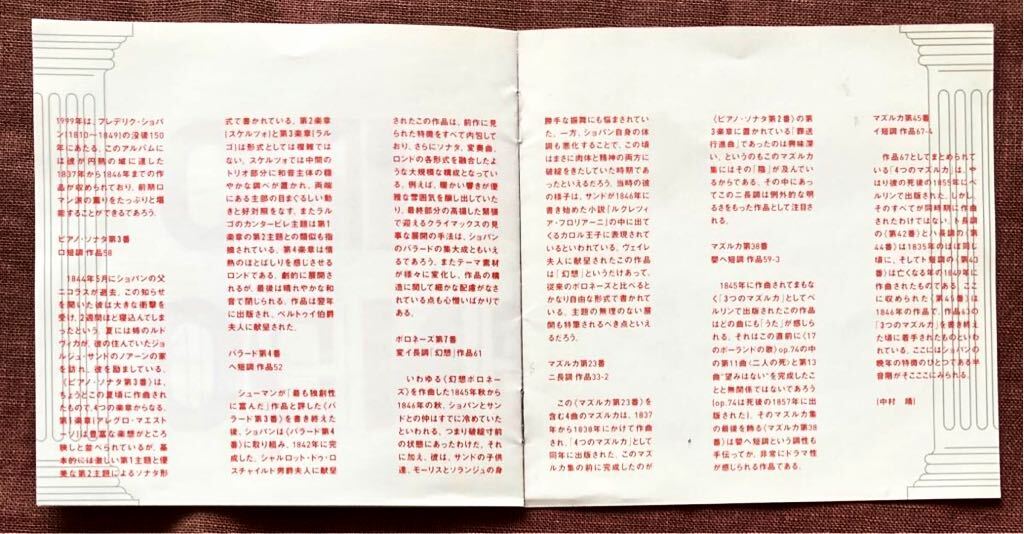 1999年は、フレデリク・ショパ
ン(1810〜1849)の没後150
年にあたる。このアルバムに
は彼が円熟の域に達した
1837年から1846年までの作
品が収められており、前期ロ
マン派の薫りをたっぷりと堪
能することができるであろう。
ピアノ・ソナタ第3番
ロ短調 作品58
1844年5月にショパンの父
ニコラスが逝去、この知らせ
を聞いた彼は大きな衝撃を
受け、2週間ほど寝込んでしま
ったという。夏には姉のルド
ヴィカが、彼の住んでいたジョ
ルジュ・サンドのノアーンの家
を訪れ、彼を励ましている。
《ピアノ・ソナタ第3番》は、
ちょうどこの夏頃に作曲され
たもので、4つの楽章からなる。
第1楽章(アレグロ・マエスト
ーソ)は豊富な楽想がところ
狭しと並べられているが、基
本的には激しい第1主題と優
美な第2主題によるソナタ形
式で書かれている。第2楽章
(スケルツォ)と第3楽章(ラル
ゴ)は形式としては複雑では
ない。スケルツォでは中間の
トリオ部分に和音主体の穏
やかな調べが置かれ、両端
にある主部の目まぐるしい動
きと好対照をなす。またラル
ゴのカンタービレ主題は第1
楽章の第2主題との類似も指
摘されている。第4楽章は情
熱のほとばしりを感じさせる
ロンドである。劇的に展開さ
れるが、最後は晴れやかな和
音で閉じられる。作品は翌年
に出版され、ペルトゥイ伯爵
夫人に献呈された。
バラード第4番
ヘ短調 作品52
シューマンが「最も独創性
に富んだ」作品と評した《バ
ラード第3番》を書き終えた
後、ショパンは《バラード第4
番》に取り組み、1842年に完
成した。シャルロット・ドゥ・ロ
スチャイルド男爵夫人に献呈
されたこの作品は、前作に見
られた特徴をすべて内包して
おり、さらにソナタ、変奏曲、
ロンドの各形式を融合したよ
うな大規模な構成となってい
る。例えば、暖かい響きが優
雅な雰囲気を醸し出していた
り、最終部分の高揚した緊張
で迎えるクライマックスの見
事な展開の手法は、ショパン
のバラードの集大成ともいえ
るであろう。またテーマ素材
が様々に変化し、作品の構
造に関して細かな配慮がなさ
れている点も心憎いばかりで
ある。
ポロネーズ第7番
変イ長調「幻想」作品61
いわゆる《幻想ポロネー
ズ》を作曲した1845年秋から
1846年の秋、ショパンとサン
ドとの仲はすでに冷めていた
といわれる。つまり破綻寸前
の状態にあったわけだ。それ
に加え、彼は、サンドの子供
達、モーリスとソランジュの身
勝手な振舞にも悩まされてい
た。一方、ショパン自身の体
調も悪化することで、この頃
はまさに肉体と精神の両方に
破綻をきたしていた時期であ
ったといえるだろう。当時の彼
の様子は、サンドが1846年に
書き始めた小説「ルクレツィ
ア・フロリアーニ」の中に出て
くるカロル王子に表現されて
いるといわれている。ヴェイレ
夫人に献呈されたこの作品
は「幻想」というだけあって、
従来のポロネーズと比べると
かなり自由な形式で書かれて
いる。主題の無理のない展
開も特筆されるべき点といえ
るだろう。
マズルカ第23番
ニ長調 作品33-2
この《マズルカ第23番》を
含む4曲のマズルカは、1837
年から1838年にかけて作曲
され、「4つのマズルカ」として
同年に出版された。このマズ
ルカ集の前に完成したのが
《ピアノ・ソナタ第2番》の第
3楽章に置かれている「葬送
行進曲」であったのは興味深
い、というのもこのマズルカ
集にはその「陰」が及んでい
るからである。その中にあっ
てこのニ長調は例外的な明
るさをもった作品として注目さ
れる。
マズルカ第38番
嬰ヘ短調 作品59-3
1845年に作曲されてまもな
く「3つのマズルカ」としてベ
ルリンで出版されたこの作品
はどの曲にも「うた」が感じら
れる。それはこの直前に《17
のポーランドの歌》op.74の中
の第11曲〈二人の死〉と第13
曲“望みはない”を完成したこ
とと無関係ではないであろう
(op.74は死後の1857年に出
版された)。そのマズルカ集
の最後を飾る《マズルカ第38
番》は嬰ヘ短調という調性も
手伝ってか、非常にドラマ性
が感じられる作品である。
マズルカ第45番
イ短調 作品67-4
作品67としてまとめられて
いる「4つのマズルカ」は、や
はり彼の死後の1855年にベ
ルリンで出版された。しかし、
そのすべてが同時期に作曲
されたわけではない。ト長調
の《第42番》とハ長調の《第
44番》は1835年のほぼ同じ
頃に、そしてト短調の《第43
番》は亡くなる年の1849年に
作曲されたものである。ここ
に収められた《第45番》は
1846年の作品で、作品63の
「3つのマズルカ」を書き終え
た頃に着手されたものといわ
れている。ここにはショパンの
晩年の特徴のひとつである半
音階がそこここにみられる。
(中村 靖)